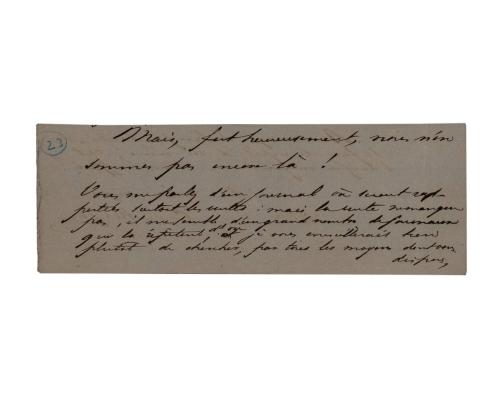 23
Mais, fort heureusement, nous n'en
sommes pas encore là !
Vous me parlez d'un journal où seront rap-
portés surtout les : mais la vente manque
pas, il me semble, d'un grand nombre de journaux
qui la répètent je vous conseillerais bien
plutôt de chercher, par tous les moyens dont vous